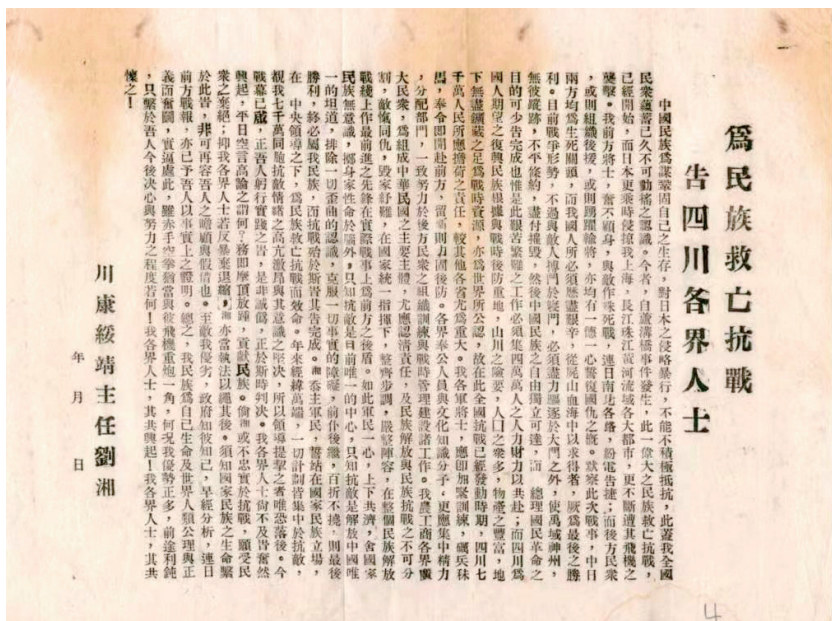 爲民族救亡抗戰
告四川各界人士
中國民族爲謀鞏固自己之生存，對日本之侵略暴行，不能不積極抵抗，此蓋我全國
民衆蘊蓄已久不可動搖之認識。今者，自蘆溝橋事件發生，此一偉大之民族救亡抗戰，
已經開始，而日本更乘時侵掠我上海，長江珠江黃河流域各大都市，更不斷遭其飛機之
襲擊。我前方將士，奮不顧身，與敵作殊死戰，連日南北各路，紛電告捷；而後方民衆
，或則組織後援，或則踴躍輸將，亦均有一德一心誓復國仇之慨。默察此次戰事，中日
兩方均爲生死關頭，而我國人所必須歷盡艱辛，從屍山血海中以求得者，厥爲最後之勝
利。目前戰爭形勢，不過與敵人搏鬥於寢門，必須盡力驅逐於大門之外，使禹域神州，
無彼蹤跡，不平條約，盡付摧毀，然後中國民族之自由獨立可達，而 總理國民革命之
目的可少告完成也惟是此艱苦繁難之工作必須集四萬萬人之人力財力以共赴；而四川爲
國人期望之復興民族根據與戰時後防重地，山川之險要，人口之衆多，物產之豐富，地
下無盡鑛藏之足爲戰時資源，亦爲世界所公認，故在此全國抗戰已經發動時期，四川七
千萬人民所應擔荷之責任，較其他各省尤爲重大。我各軍將士，應卽加緊訓練，礪兵秣
馬，奉令卽開赴前方，留則力固後防。各界奉公人員與文化知識分子，更應集中精力
，分配部門，一致努力於後方民衆之組織訓練與戰時管理建設諸工作。我農工商各界廣
大民衆，爲組成中華民國之主要主體，尤應認清責任，及民族解放與民族抗戰之不可分
割，敵愾同仇，毀家紓難，在國家統一指揮下，整齊步調，嚴整陣容，在整個民族解放
戰綫上作最前進之先鋒在實際戰事上爲前方之後盾。如此軍民一心，上下共濟，舍國家
民族無意識，擲身家性命於腦外，只知抗敵是目前唯一的中心，只知抗敵是解放中國唯
一的坦道，排除一切歪曲的認識，克服一切事實的障礙，前仆後繼，百折不撓，則最後
勝利，終必屬我民族，而抗戰殆於斯皆其告完成。湘忝主軍民，誓站在國家民族立場，
在 中央領導之下，爲民族救亡抗戰而效命。年來經緯萬端，一切計劃皆集中於抗敵，
覩我七千萬同胞抗敵情緒之高亢激昂與其意識之堅決，所以領導提挈之者唯恐落後。今
戰幕已啟，正吾人躬行實踐之時，是非誠僞，正於斯時判決。我各界人士尙不及時奮然
興起，平日空言高論之謂何？務卽摩頂放踵，貢獻民族。倘湘或不忠實於抗戰，願受民
衆之棄絕；抑我各界人士若反暴棄退縮，湘亦當執法以繩其後。須知國家民族之生命繫
於此時，非可再容吾人之瞻顧與假借也。至敵我優劣，政府知彼知己，早經分析，連日
前方戰報，亦已予吾人以事實上之體明。總之，我民族爲自己生命及世界人類公理與正
義而奮鬭，實逼處此，雖赤手空拳猶當與彼飛機重炮一角，何况我優勢正多，前途利鈍
，只繫於吾人今後決心與努力之程度若何！我各界人士，其共興起！我各界人士，其共
懍之！
川康綏靖主任劉湘
年 月 日
4